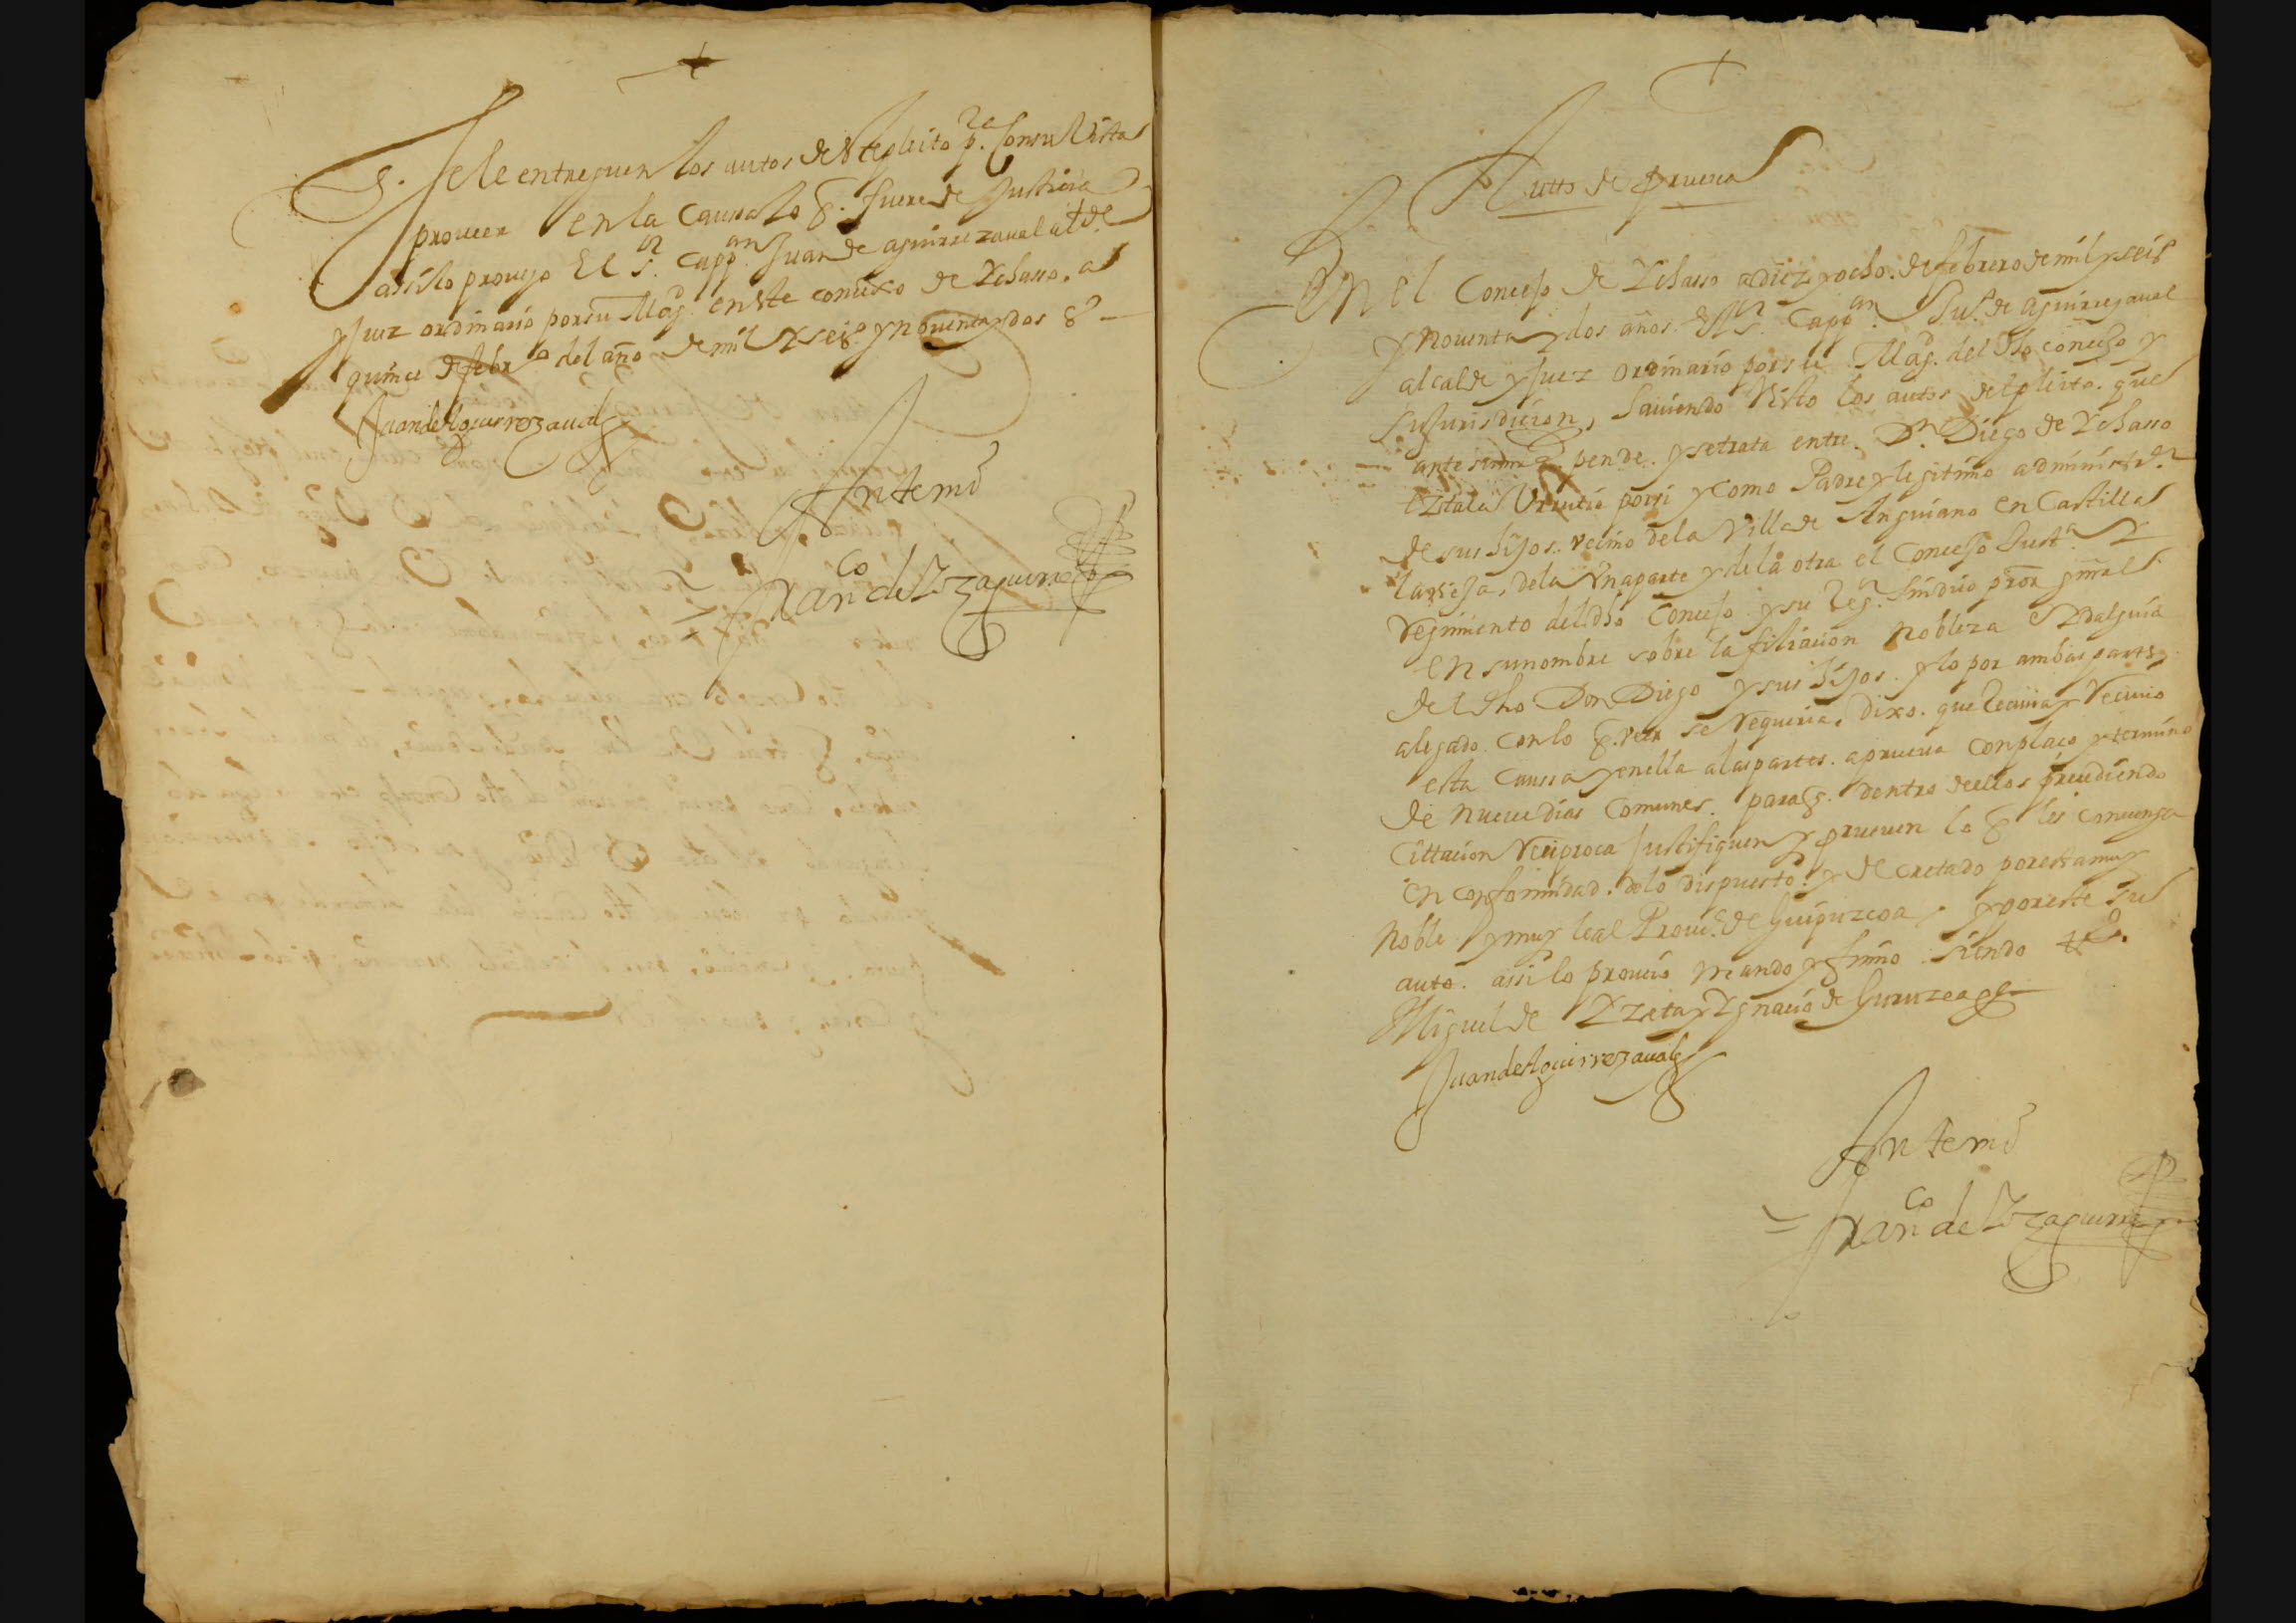 Que Sele entreguen los autos deste pleito pa. Con su Vista
proueer en la Caussa lo q. fuere de Justicia
assi lo proueyo El Sr. Cappan. Juan de aguirrezaual alde.
y Juez ordinario por su Magd. en este concexo de Ychasso. a
quince de febro del año de mil y seiso. y nouenta y dos
Juan de Aguirrezaual
Ante mi
Franco de Yzaguirre
Autto de prueua
En el Concejo de Ychasso a diez y ocho. de febrero de mil y seiso
y nouenta y dos años. El Sr. Cappan. Juo. de aguirrezaual
alcalde y Juez ordinario por su Magd. del dho concejo y
su Jurisdicion, hauiendo visto los autos del pleito. que
ante su md pende. y se trata entre. Dn. Diego de Ychasso
Vrrutia por si y como Padre y legitimo administor.
de sus hijos. vecino de la Villa de Anguiano en Castilla
la vieja, de la Vna parte y de la otra el Concejo Justa. y
Regimiento del dho Concejo y su Sindico pror. gnral
en su nombre sobre la filiacion Nobleza e Ydalguia
del dho Don Diego y sus hijos. y lo por ambas partes
alegado. con lo q. ver se requeria, dixo. que Reciuia y Reciuio
esta Caussa y en ella a las partes. a prueua con plaço y termino
de nueue dias Comunes. para q. dentro de ellos precediendo
Cittacion Reciproca Justifiquen y prueuen lo q les conuenga
en conformidad. de lo dispuesto. y decretado por esta muy
Noble y muy leal Proua. de Guipuzcoa, y por este su
auto. assi lo proueio mando y firmo siendo tgos.
Miguel de Yzeta y Ygnacio de Guruzeaga
Juan de Aguirrezaual
Ante mi
Franco de Yzaguirre